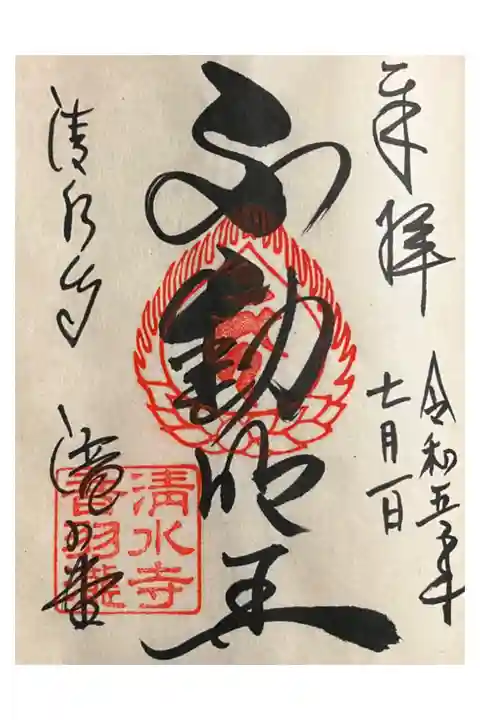 奉拝
令和五年
七月一日
不動明王
清水寺
瀧の堂
清水寺
音羽瀧